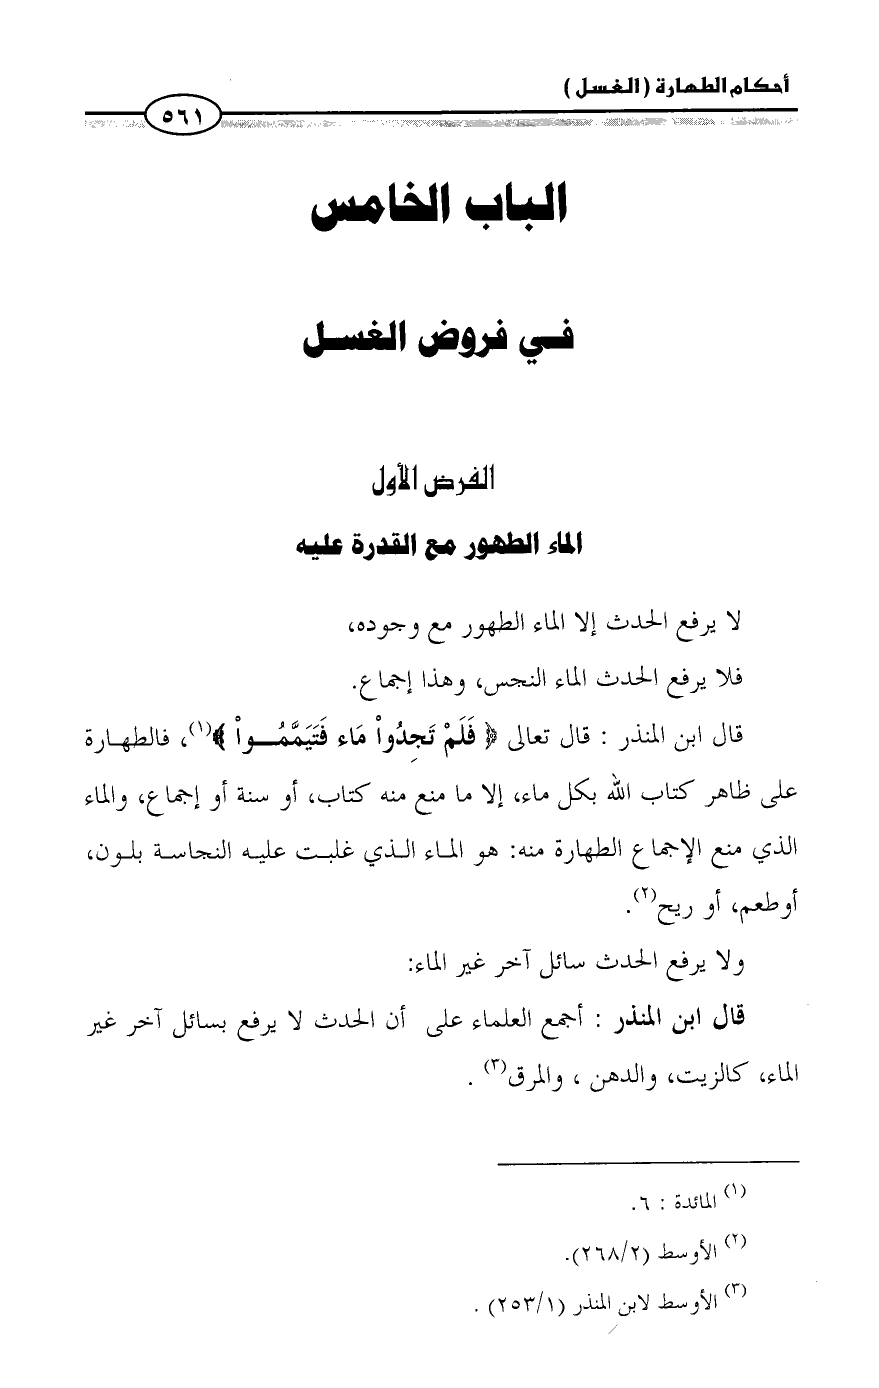 أحكام الطهارة (الغسل)
٥٦١
الباب الخامس
في فروض الغسل
الفرض الأول
الماء الطهور مع القدرة عليه
لا يرفع الحدث إلا الماء الطهور مع وجوده،
فلا يرفع الحدث الماء النجس، وهذا إجماع.
قال ابن المنذر : قال تعالى ﴿ فَلَمْ تَجِدُواْ مَاء فَتَيَمَّمُـــواْ ﴾(١)، فالطهـارة
على ظاهر كتاب الله بكل ماء، إلا ما منع منه كتاب، أو سنة أو إجماع، والماء
الذي منع الإجماع الطهارة منه: هو المـاء الـذي غلبـت عليـه النجاسـة بلـون،
أوطعم، أو ريح(٢).
ولا يرفع الحدث سائل آخر غير الماء:
قال ابن المنذر : أجمع العلماء على أن الحدث لا يرفع بسائل آخر غير
الماء، كالزيت، والدهن ، والمرق(٣) .
(١) المائدة : ٦.
(٢) الأوسط (٢٦٨/٢).
(٣) الأوسط لابن المنذر (٢٥٣/١) .